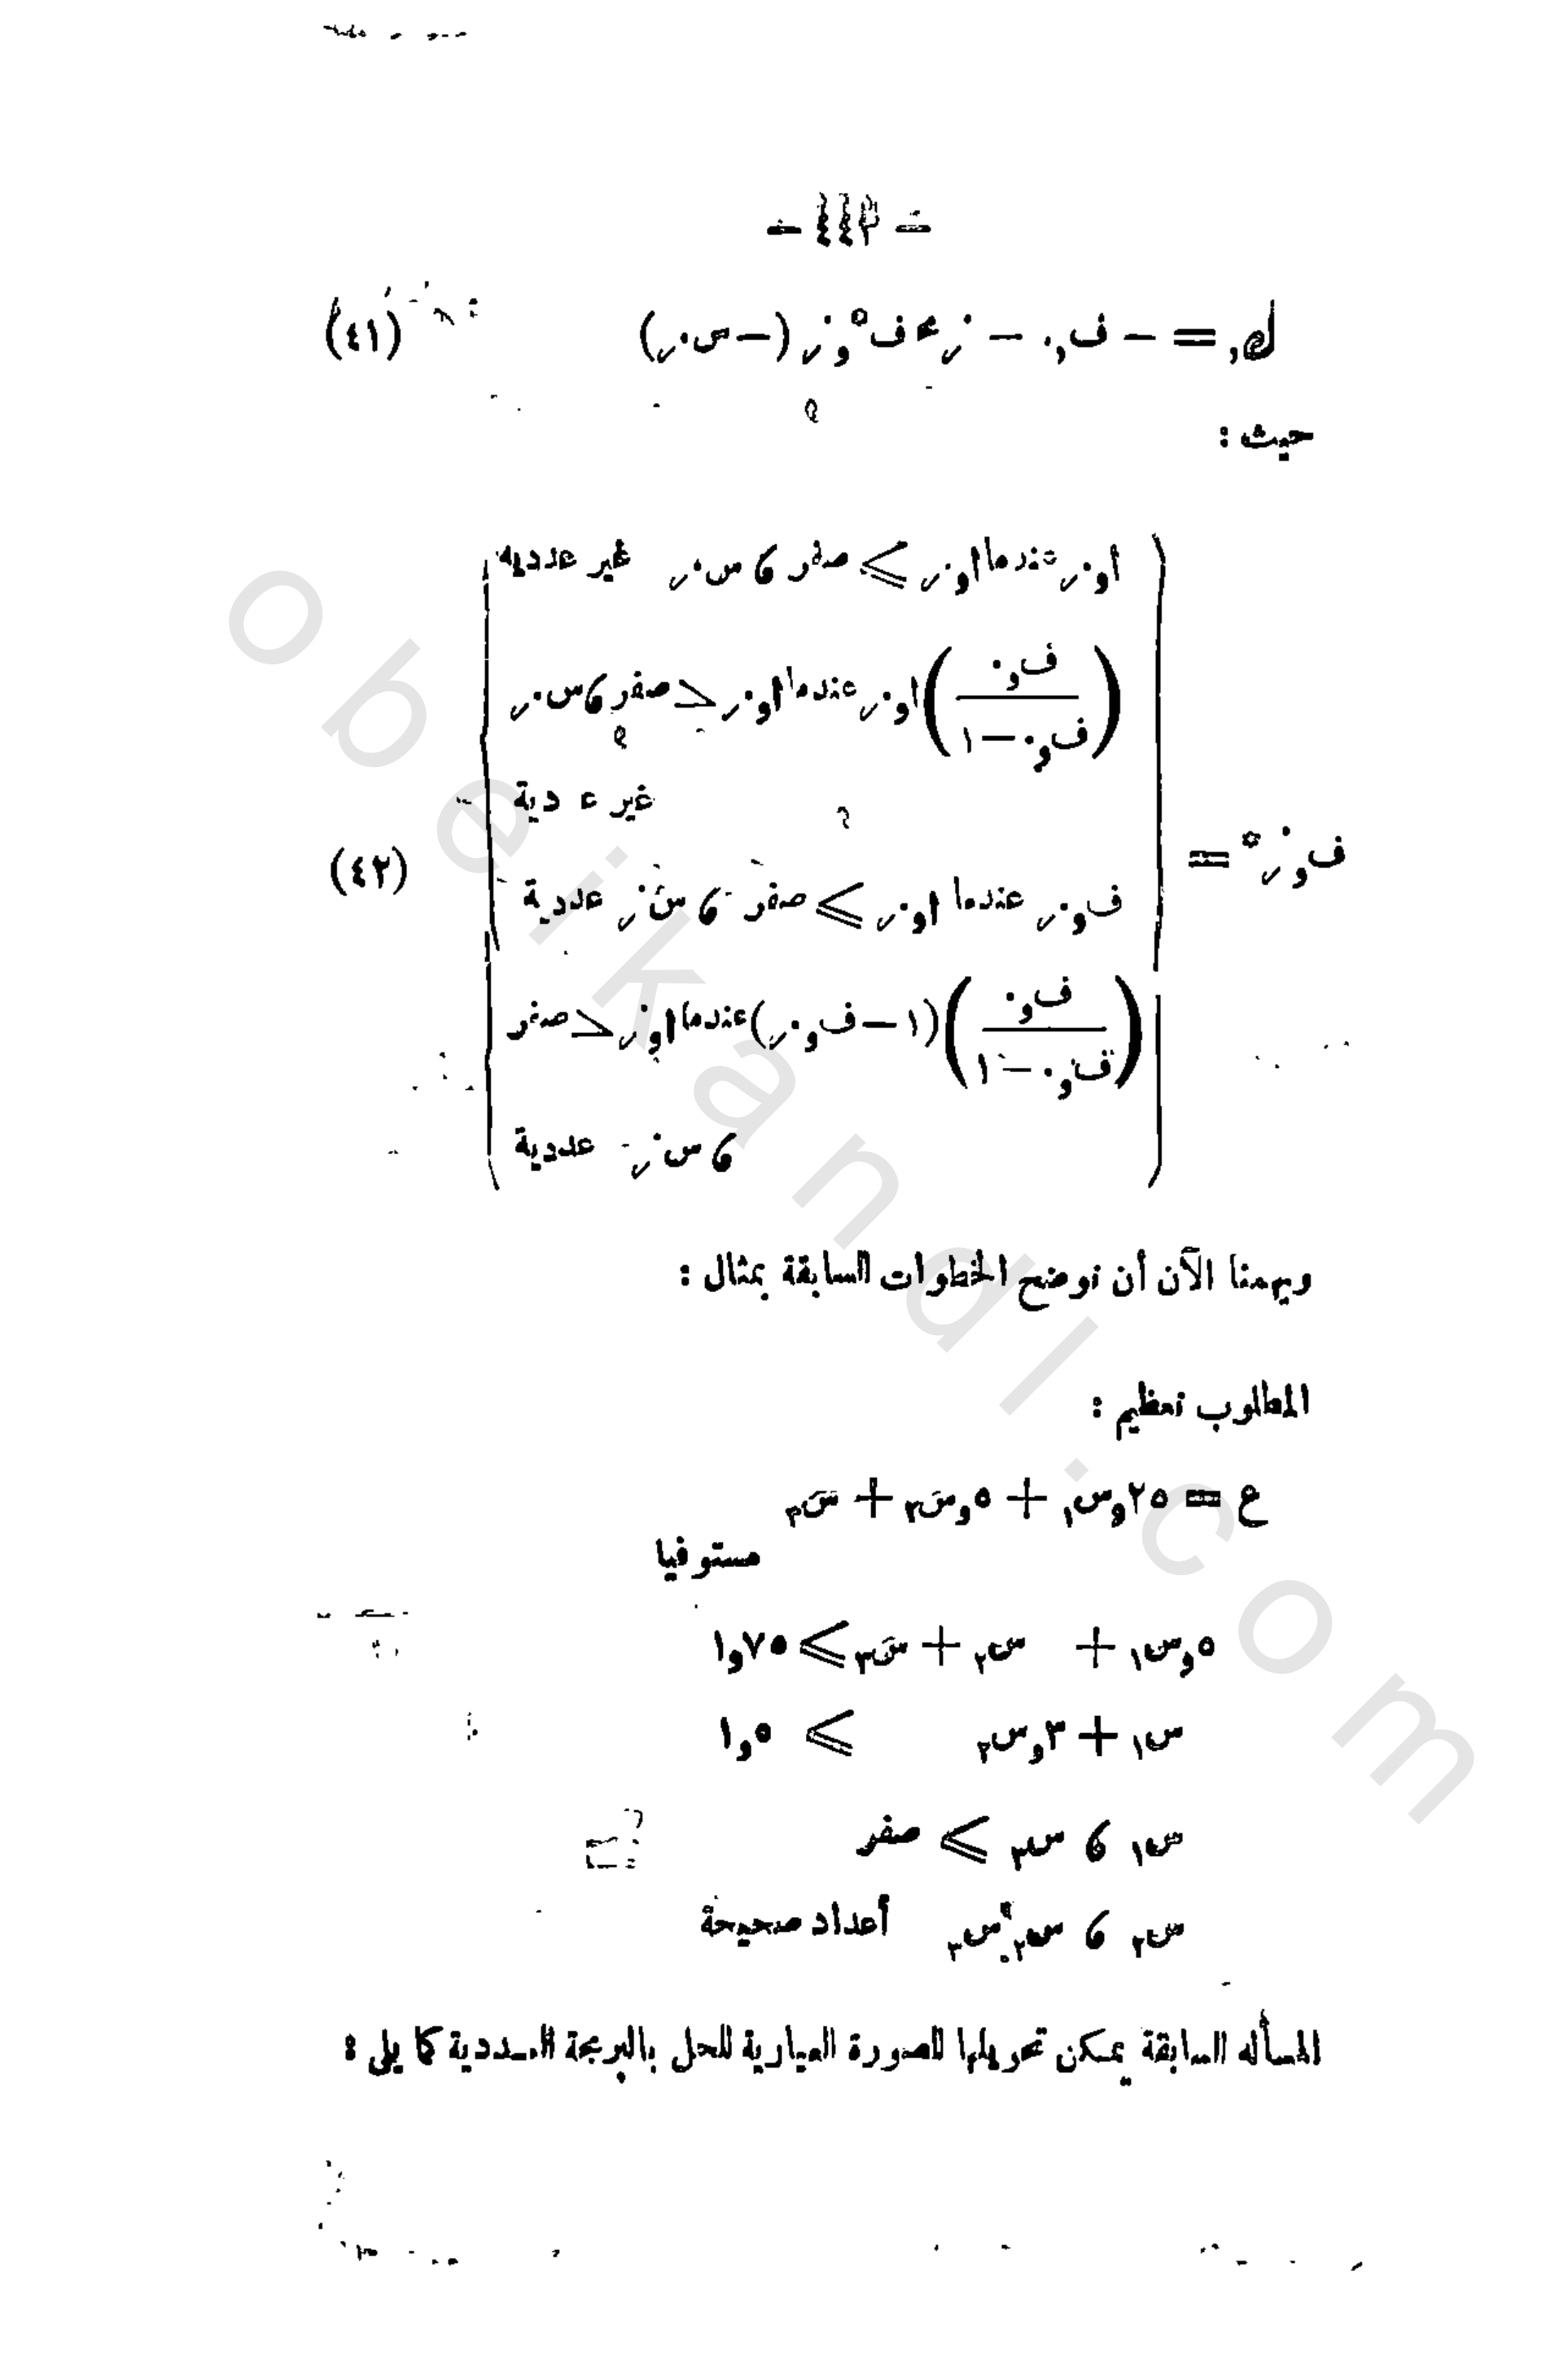 - ٣٤٤ -
ل و = - ف و٠ - ز محـ ف* و ز (- س٠ر) (٤١)
حيث :
او٠ر عندما او٠ر ⩽ صفر 6 س٠ر غير عددية
(ف و٠ / ف و٠ - ١) او٠ر عندما او٠ر < صفر 6 س٠ر
غير ع دية
ف و ز* = (٤٢)
ف و٠ر عندما او٠ر ⩽ صفر 6 س٠ر عددية
(ف و٠ / ف و٠ - ١) (١ - ف و٠ر) عندما او٠ر < صفر
6 س٠ر عددية
ويهمنا الآن أن نوضح الخطوات السابقة بمثال :
المطلوب تعظيم :
ع = ٢٥وس١ + ٥وس٢ + س٣
مستوفيا
٥وس١ + س٢ + س٣ ⩽ ٧٥و١
س١ + ٣وس٢ ⩽ ٥و١
س١ 6 س٣ ⩽ صفر
س٢ 6 س٢ س٣ أعداد صحيحة
المسأله السابقة يمكن تحويلها للصورة العيارية للحل بالبرمجة العددية كما يلى :
obeikandl.com